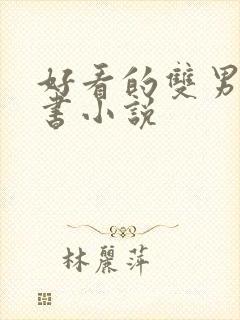 好看的雙男
書小說
林麗萍